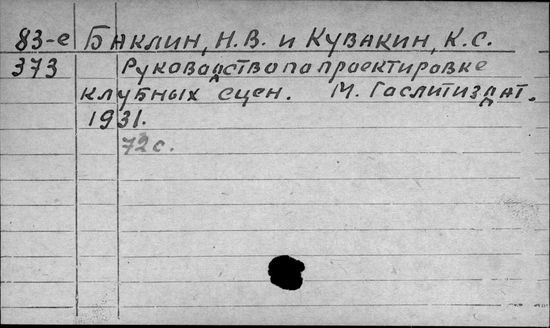 83-е Баклин, Н.В. и Кувакин, К.С.
373 Руководство по проектировке
клубных сцен. М. Гослитиздат.
1931.
72 с.